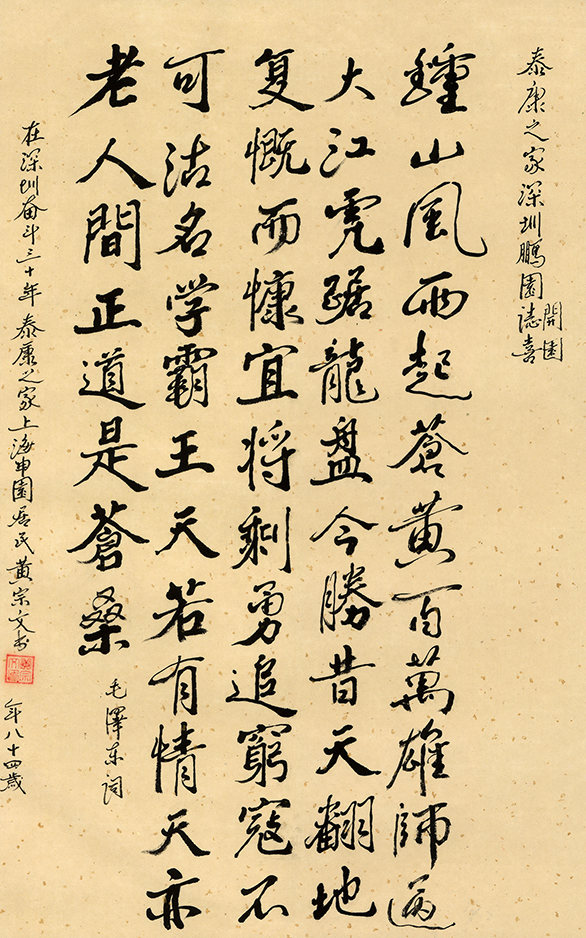 泰康之家深圳鵬園誌喜
開園
鍾山風雨起蒼黄百萬雄師過
大江虎踞龍盘今勝昔天翻地
复慨而慷宜将剩勇追窮寇不
可沽名学霸王天若有情天亦
老人間正道是蒼桑
毛澤东词
在深圳奋斗三十年 泰康之家上海申園居民黄宗文书
年八十四歲